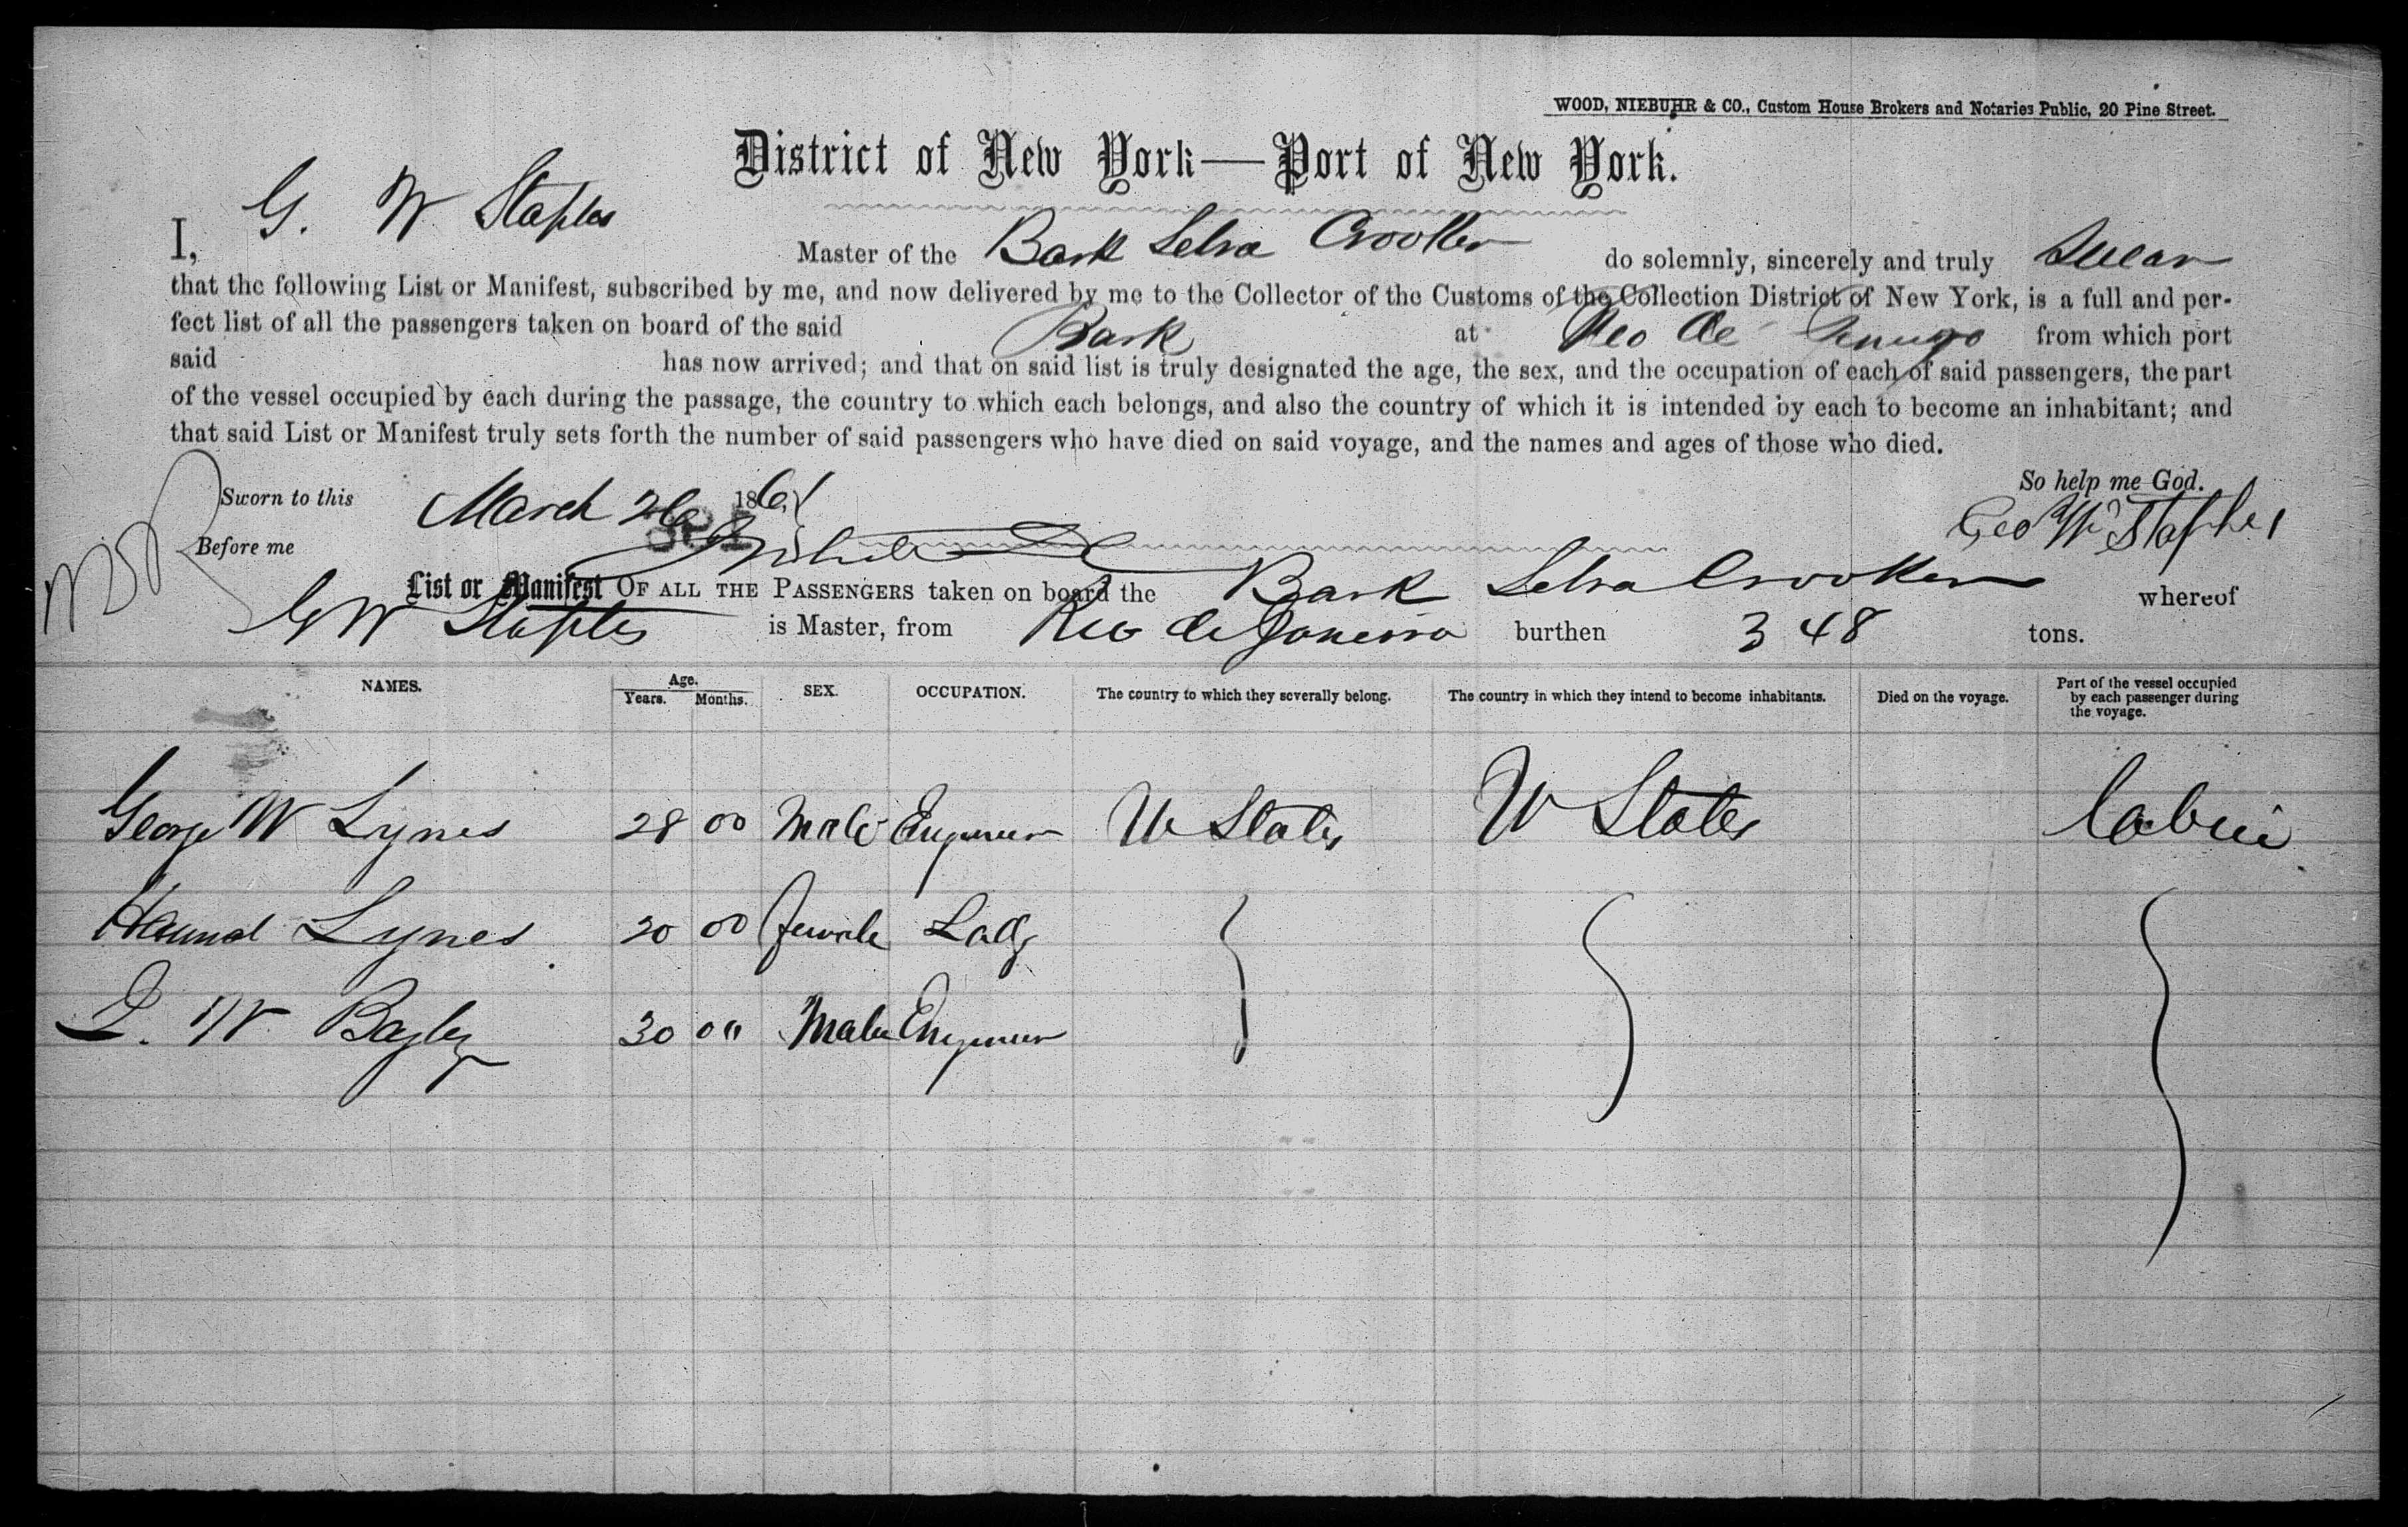 WOOD, NIEBUHR & CO., Custom House Brokers and Notaries Public, 20 Pine Street.
District of New York—Port of New York.
I, G. W Staples Master of the Bark Lelia Crooker do solemnly, sincerely and truly Swear
that the following List or Manifest, subscribed by me, and now delivered by me to the Collector of the Customs of the Collection District of New York, is a full and per-
fect list of all the passengers taken on board of the said Bark at Reo de from which port
said has now arrived; and that on said list is truly designated the age, the sex, and the occupation of each of said passengers, the part
of the vessel occupied by each during the passage, the country to which each belongs, and also the country of which it is intended by each to become an inhabitant; and
that said List or Manifest truly sets forth the number of said passengers who have died on said voyage, and the names and ages of those who died.
So help me God.
Sworn to this March 26 1861
Geo W Staples
Before me
List or Manifest OF ALL THE PASSENGERS taken on board the Bark Crooker whereof
G W Staples is Master, from Rio de Janeiro burthen 348 tons.
NAMES. Age. Years. Months. SEX. OCCUPATION. The country to which they severally belong. The country in which they intend to become inhabitants. Died on the voyage. Part of the vessel occupied by each passenger during the voyage.
George W Lynes 28 00 Male Engineer U States U States Cabin
Lynes 20 00 female Lady
W Bagley 30 00 Male Engineer